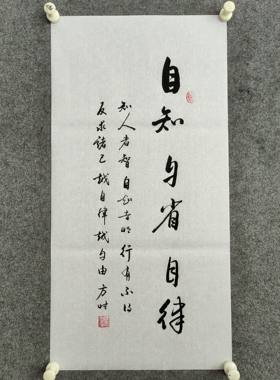 自知自省自律
知人者智自知者明行有不得
反求诸己越自律越自由方时